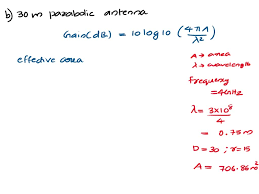 b) 30m parabolic antenna
Gain(dB) = 10 log 10 (4πA / λ²)
effective area
A → area
λ → wavelength
frequency
= 4GHz
λ = 3×10⁸ / 4
= 0.75m
D = 30 ; r = 15
A = 706.86m²